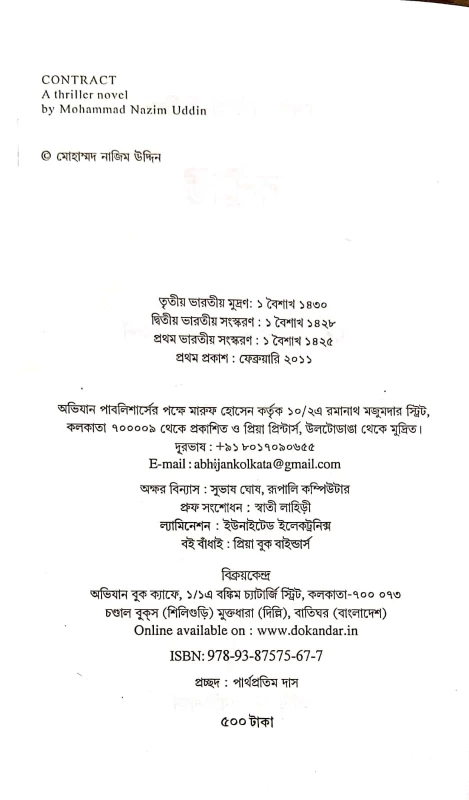 CONTRACT
A thriller novel
by Mohammad Nazim Uddin
© মোহাম্মদ নাজিম উদ্দিন
তৃতীয় ভারতীয় মুদ্রণ: ১ বৈশাখ ১৪৩০
দ্বিতীয় ভারতীয় সংস্করণ : ১ বৈশাখ ১৪২৮
প্রথম ভারতীয় সংস্করণ : ১ বৈশাখ ১৪২৫
প্রথম প্রকাশ : ফেব্রুয়ারি ২০১১
অভিযান পাবলিশার্সের পক্ষে মারুফ হোসেন কর্তৃক ১০/২এ রমানাথ মজুমদার স্ট্রিট,
কলকাতা ৭০০০০৯ থেকে প্রকাশিত ও প্রিয়া প্রিন্টার্স, উলটোডাঙা থেকে মুদ্রিত।
দূরভাষ : +৯১ ৮০১৭০৯০৬৫৫
E-mail : abhijankolkata@gmail.com
অক্ষর বিন্যাস : সুভাষ ঘোষ, রূপালি কম্পিউটার
প্রুফ সংশোধন : স্বাতী লাহিড়ী
ল্যামিনেশন : ইউনাইটেড ইলেকট্রনিক্স
বই বাঁধাই : প্রিয়া বুক বাইন্ডার্স
বিক্রয়কেন্দ্র
অভিযান বুক ক্যাফে, ১/১এ বঙ্কিম চ্যাটার্জি স্ট্রিট, কলকাতা-৭০০ ০৭৩
চণ্ডাল বুক্‌স (শিলিগুড়ি) মুক্তধারা (দিল্লি), বাতিঘর (বাংলাদেশ)
Online available on : www.dokandar.in
ISBN: 978-93-87575-67-7
প্রচ্ছদ : পার্থপ্রতিম দাস
৫০০ টাকা